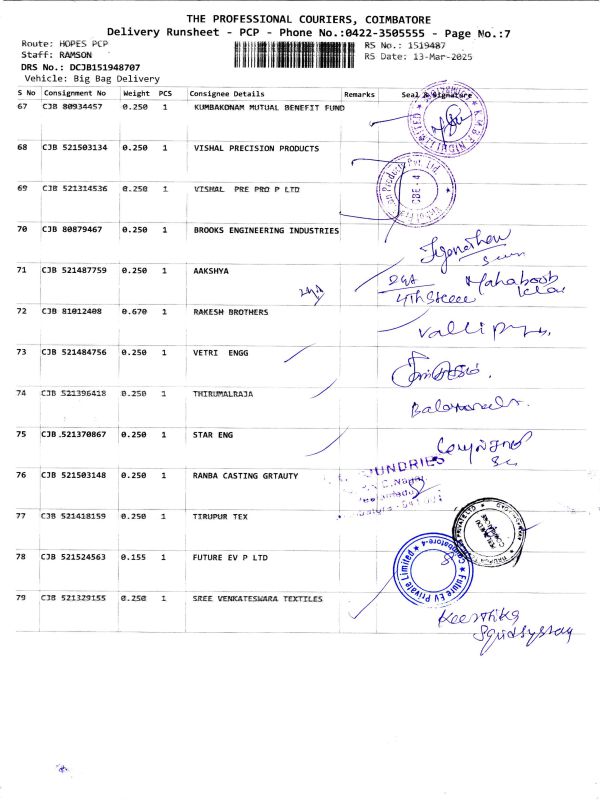 THE PROFESSIONAL COURIERS, COIMBATORE
Delivery Runsheet - PCP - Phone No.:0422-3505555 - Page No.:7
Route: HOPES PCP RS No.: 1519487
Staff: RAMSON RS Date: 13-Mar-2025
DRS No.: DCJB151948707
Vehicle: Big Bag Delivery
S No Consignment No Weight PCS Consignee Details Remarks Seal & Signature
67 CJB 80934457 0.250 1 KUMBAKONAM MUTUAL BENEFIT FUND
68 CJB 521503134 0.250 1 VISHAL PRECISION PRODUCTS
69 CJB 521314536 0.250 1 VISHAL PRE PRO P LTD
CBE-4
70 CJB 80879467 0.250 1 BROOKS ENGINEERING INDUSTRIES
71 CJB 521487759 0.250 1 AAKSHYA
Mahaboob
4th Street
72 CJB 81012408 0.670 1 RAKESH BROTHERS
73 CJB 521484756 0.250 1 VETRI ENGG
74 CJB 521396418 0.250 1 THIRUMALRAJA
75 CJB 521370867 0.250 1 STAR ENG
76 CJB 521503148 0.250 1 RANBA CASTING GRTAUTY
77 CJB 521418159 0.250 1 TIRUPUR TEX
78 CJB 521524563 0.155 1 FUTURE EV P LTD
Future EV Private Limited
Coimbatore-4
79 CJB 521329155 0.250 1 SREE VENKATESWARA TEXTILES
Keerthika